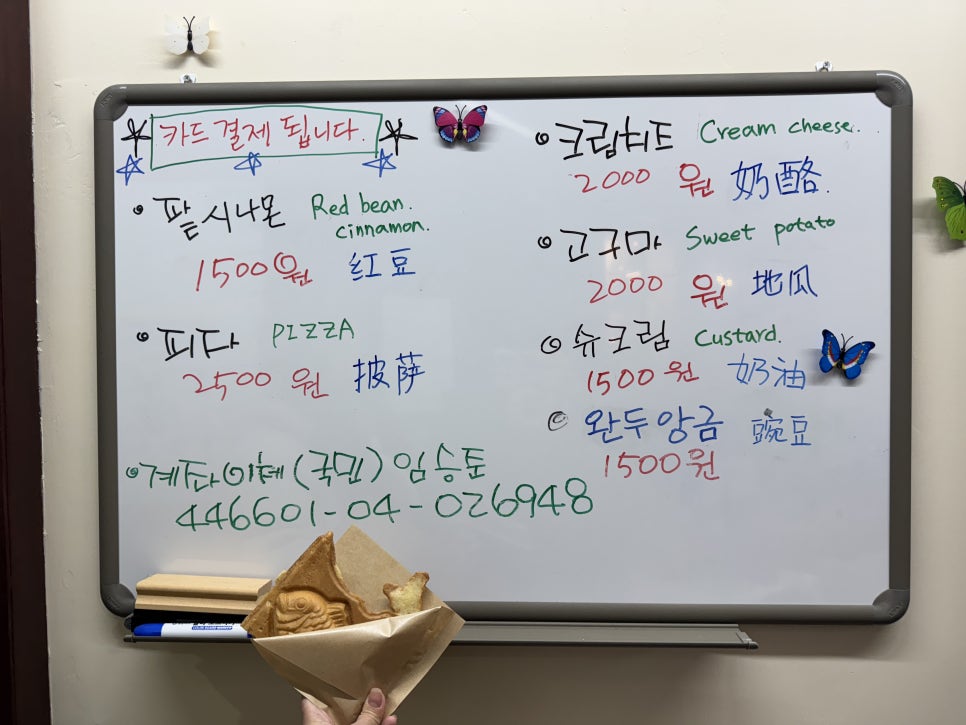 카드 결제 됩니다.
팥시나몬 Red bean.
cinnamon.
1500원 红豆
피자 PIZZA
2500 원 披萨
계좌이체 (국민) 임승툰
446601-04-026948
크림치즈 Cream cheese.
2000 원 奶酪.
고구마 Sweet potato
2000 원 地瓜
슈크림 Custard.
1500 원 奶油
완두앙금 豌豆
1500 원